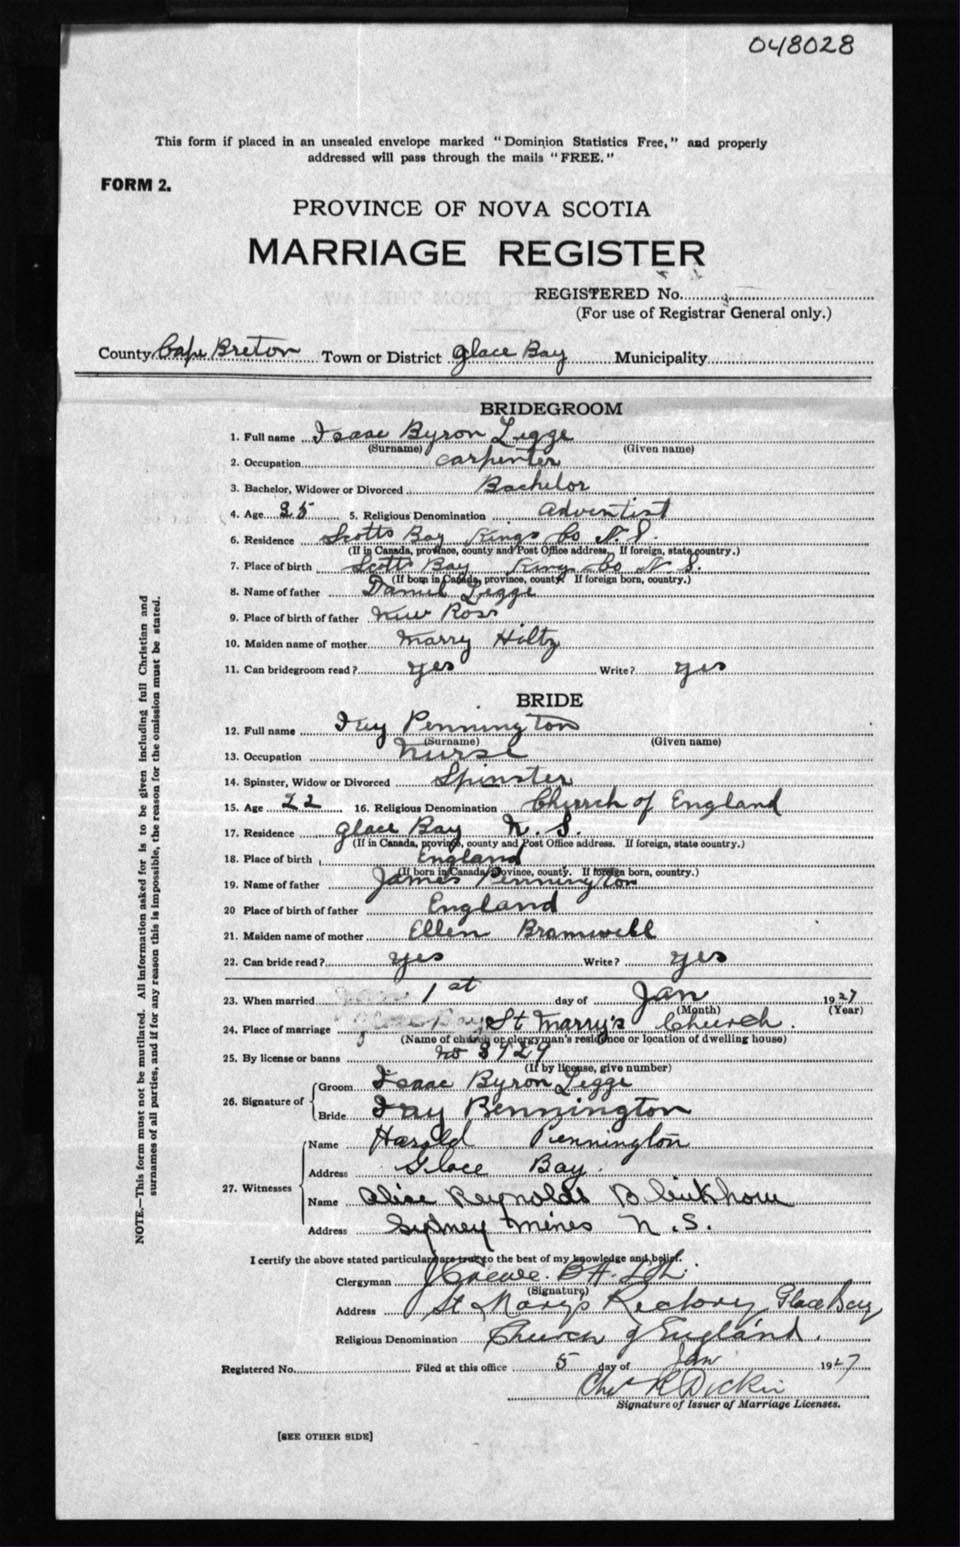 048028
This form if placed in an unsealed envelope marked "Dominion Statistics Free," and properly
addressed will pass through the mails "FREE."
FORM 2.
PROVINCE OF NOVA SCOTIA
MARRIAGE REGISTER
REGISTERED No.
(For use of Registrar General only.)
County Cape Breton Town or District Glace Bay Municipality
BRIDEGROOM
1. Full name Isaac Byron Legge
(Surname) (Given name)
2. Occupation carpenter
3. Bachelor, Widower or Divorced Bachelor
4. Age 25 5. Religious Denomination Adventist
6. Residence Scotts Bay Kings Co N.S.
(If in Canada, province, county and Post Office address. If foreign, state country.)
7. Place of birth Scotts Bay Kings Co N.S.
(If born in Canada, province, county. If foreign born, country.)
8. Name of father Daniel Legge
9. Place of birth of father New Ross
10. Maiden name of mother Marry Hiltz
11. Can bridegroom read? yes Write? yes
BRIDE
12. Full name Fay Pennington
(Surname) (Given name)
13. Occupation Nurse
14. Spinster, Widow or Divorced Spinster
15. Age 22 16. Religious Denomination Church of England
17. Residence Glace Bay N.S.
(If in Canada, province, county and Post Office address. If foreign, state country.)
18. Place of birth England
(If born in Canada, province, county. If foreign born, country.)
19. Name of father James Pennington
20 Place of birth of father England
21. Maiden name of mother Ellen Bramwell
22. Can bride read? yes Write? yes
23. When married 1st day of Jan 1927
(Month) (Year)
24. Place of marriage St Marry's Church.
(Name of church or clergyman's residence or location of dwelling house)
25. By license or banns no 3929
(If by license, give number)
26. Signature of
Groom Isaac Byron Legge
Bride Fay Pennington
27. Witnesses
Name Harold Pennington
Address Glace Bay.
Name Alice Reynolds
Address Sydney Mines N.S.
I certify the above stated particulars are true to the best of my knowledge and belief.
Clergyman
(Signature)
Address St Mary's Rectory, Glace Bay
Religious Denomination Church of England.
Registered No. Filed at this office 5 day of Jan 1927
Signature of Issuer of Marriage Licenses.
[SEE OTHER SIDE]
NOTE.—This form must not be mutilated. All information asked for is to be given including full Christian and
surnames of all parties, and if for any reason this is impossible, the reason for the omission must be stated.